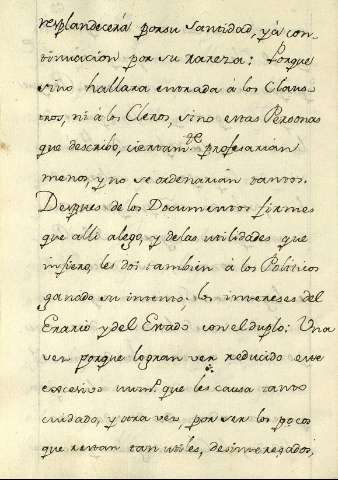 resplandecerá por su Santidad, y á con-
tinuacion por su rareza: Porque
si no hallara entrada á los Claus-
tros, ni á los Cleros, sino en tas Personas
que describo, ciertam.te profesarian
menos, y no se ordenarian tantos.
Despues de los Documentos firmes
que alli alego, y de las utilidades que
infiero, les doi tambien á los Politicos
ganado su intento, los intereses del
Erario y del Estado con el duplo: Una
vez porque logran ver reducido este
excesivo num.o que les causa tanto
cuidado, y otra vez, por ver los pocos
que restan tan utiles, desinteresados,